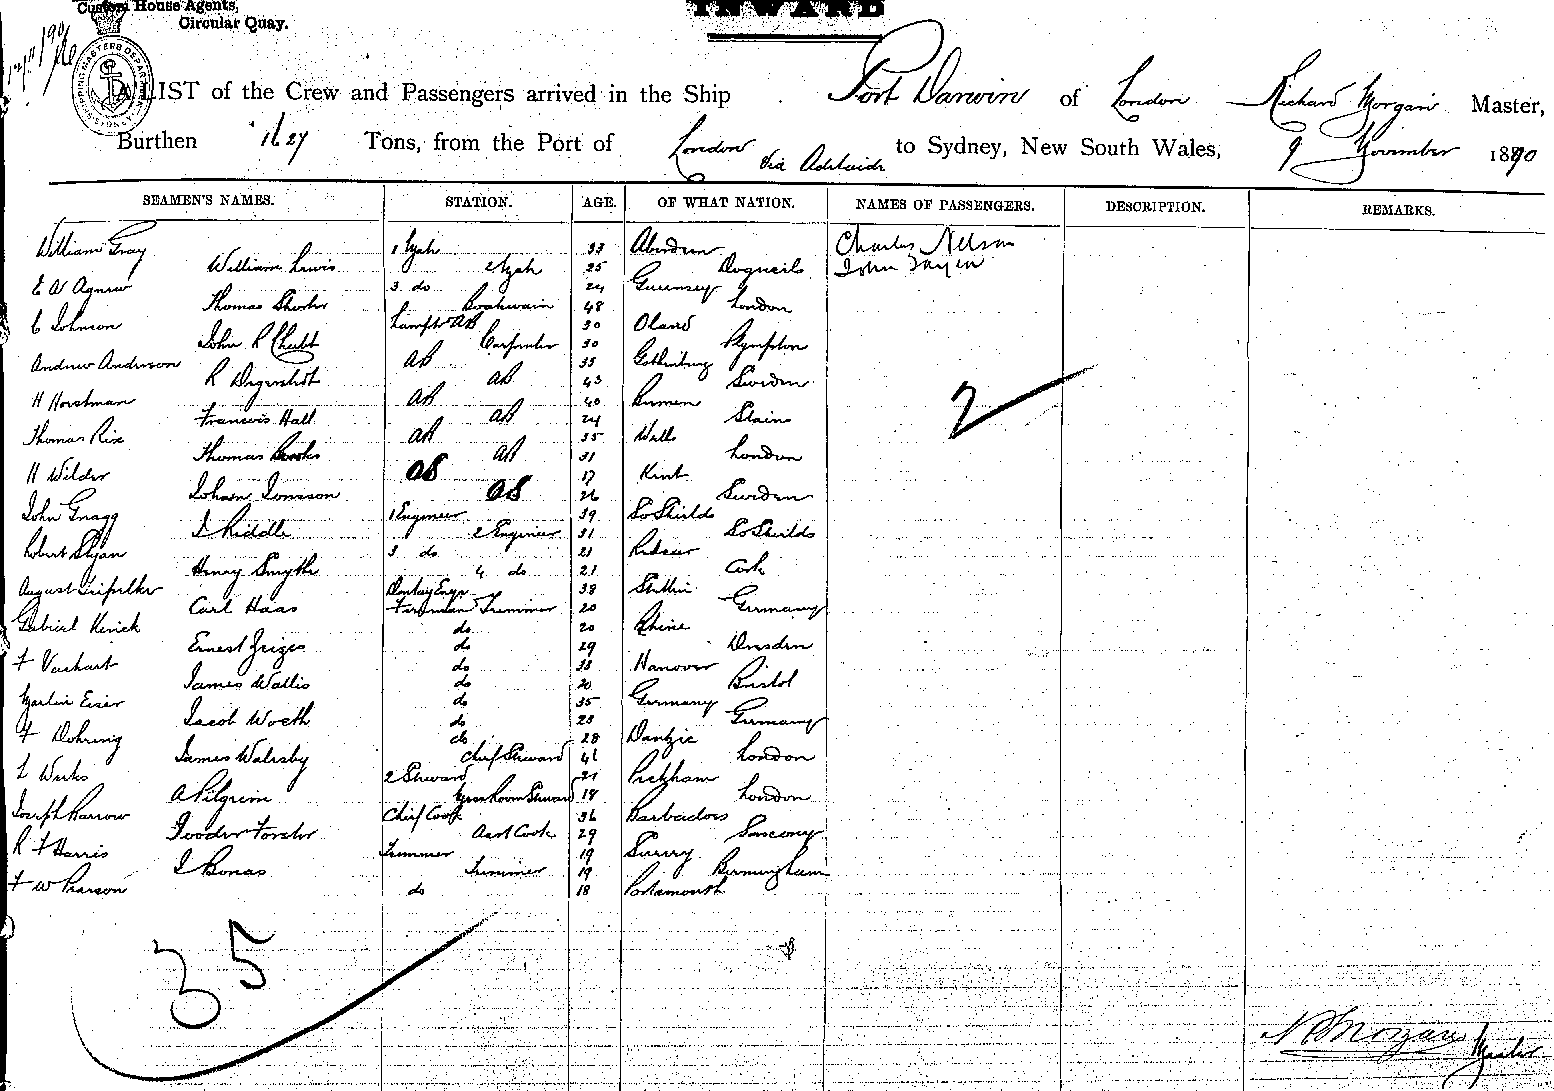 Custom House Agents,
Circular Quay.
INWARD
A LIST of the Crew and Passengers arrived in the Ship Port Darwin of London Richard Morgan Master,
Burthen 1627 Tons, from the Port of London via Adelaide to Sydney, New South Wales, 9 November 1890
SEAMEN'S NAMES. STATION. AGE. OF WHAT NATION. NAMES OF PASSENGERS. DESCRIPTION. REMARKS.
William Gray 1 33 Aberdeen Charles Nelson
William Lewis 2 25 John
E W Agnew 3 do 24 Guernsey
Thomas Boatswain 48 London
C Johnson Lamptr AB 30 Oland
John R Carpenter 30 Plympton
Andrew Anderson AB 35 Gothenburg
R AB 43 Sweden
H Horstman AB 40 Bremen
Francis Hall AB 24 Stains
Thomas Rix AB 35 Wells
Thomas Brooks AB 31 London
H Wilder OS 17 Kent
Johan Jonsson OS 26 Sweden
John Gragg 1 Engineer 39 So Shields
J Riddle 2 Engineer 31 So Shields
Robert 3 do 21
Henry Smythe 4 do 21 Cork
August Donkey Engr 38 Stettin
Carl Haas Fireman Trimmer 20 Germany
Gabriel do 20 Rhine
Ernest do 29 Dresden
F Vachart do 38 Hanover
James Wallis do 20 Bristol
Martin Eiser do 35 Germany
Jacob Woeth do 23 Germany
F Dohring do 28 Dantzic
James Walesby Chief Steward 41 London
L Weeks 2 Steward 21 Peckham
A Pilgrim Messroom Steward 18 London
Joseph Barrow Chief Cook 36 Barbadoes
Forster Asst Cook 29 Saxony
R F Harris Trimmer 19 Surrey
J Bonas Trimmer 19 Birmingham
F W Pearson do 18 Portsmouth
2
35
Morgan Master